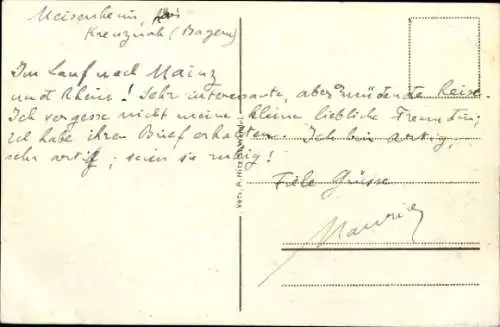 Meisenheim,
Kreuznah (Bayern)
Im Lauf nach Mainz
und Rhein! Sehr interessante, aber müdende Reise.
Ich vergesse nicht meine kleine liebliche Freundin;
ich habe ihren Brief erhalten. Ich bin artig,
sehr artig; seien sie ruhig!
Fiele Grüsse
Maurice